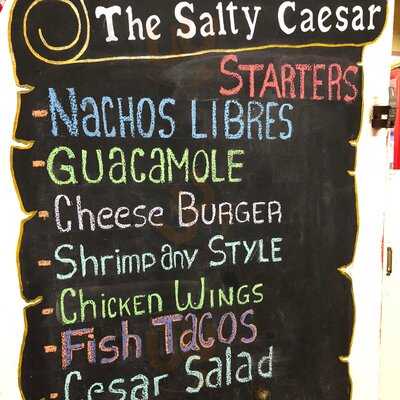 The Salty Caesar
STARTERS
- NACHOS LIBRES
- GUACAMOLE
- Cheese BURGER
- Shrimp any STYLE
- CHICKEN WINGS
- Fish TACOS
- Cesar Salad